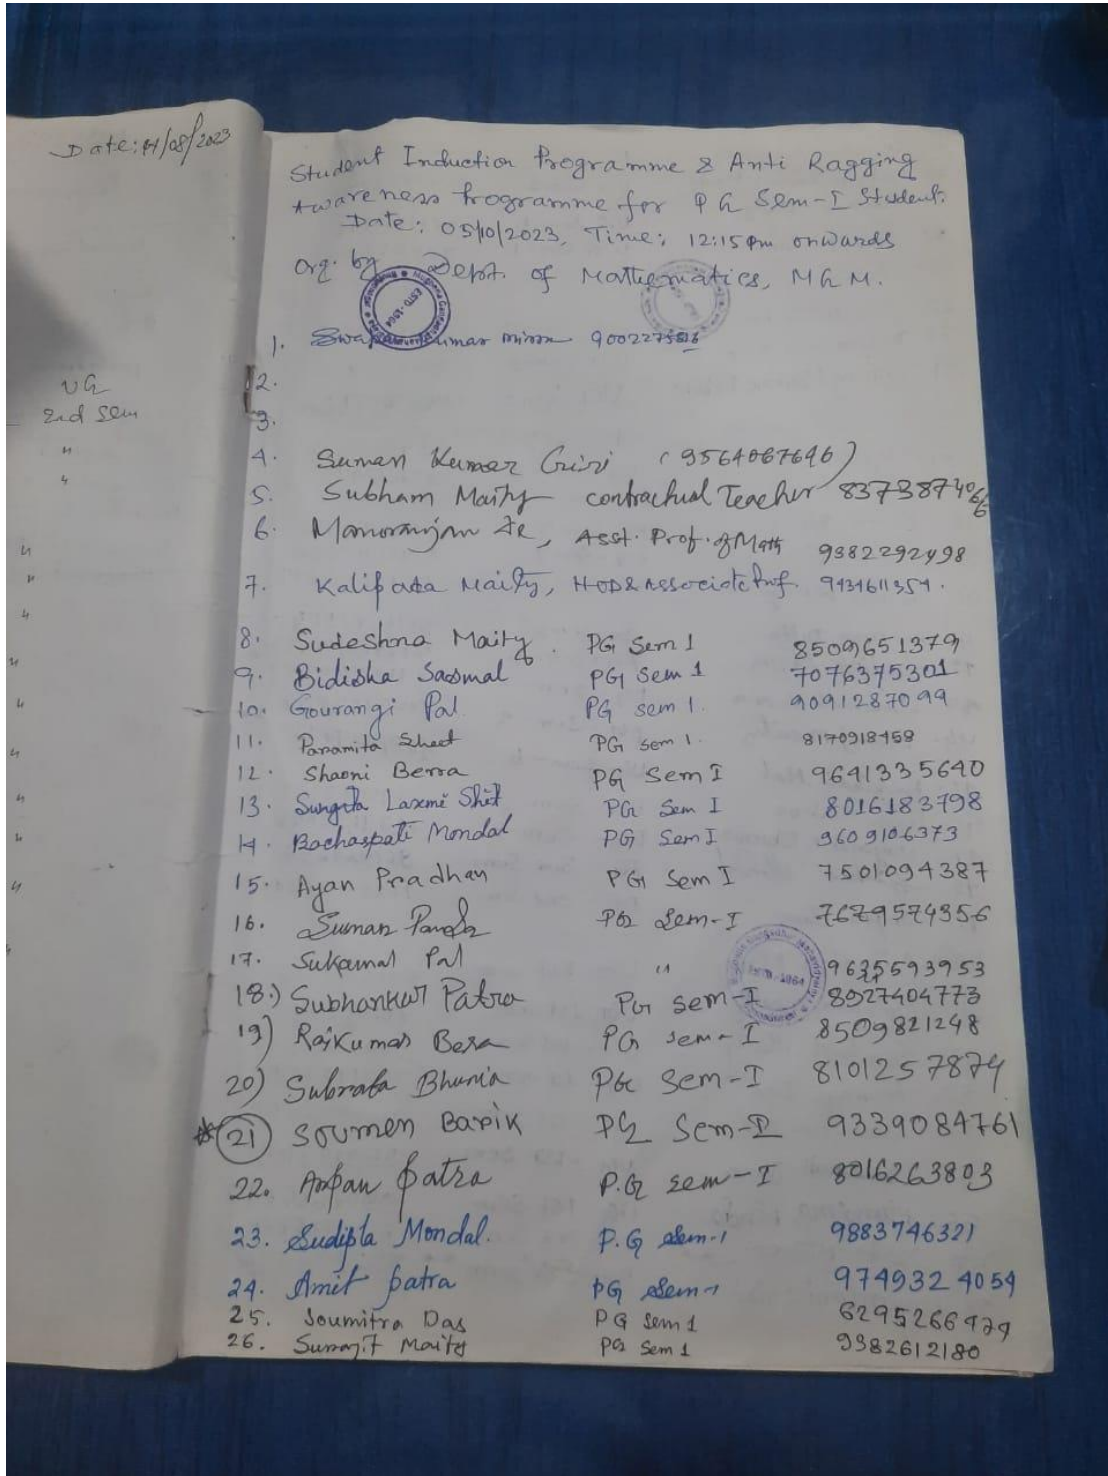 Date: 14/08/2023
UG
2nd Sem
"
"
Student Induction Programme & Anti Ragging
Awareness Programme for PG Sem-I Student.
Date: 05/10/2023, Time: 12:15 pm onwards
Org. by Dept. of Mathematics, MGM.
ESTD-1964
1. Kumar Misra
2.
3.
4. Suman Kumar Giri (9564067646)
5. Subham Maity contractual Teacher
6. Manoranjan De, Asst. Prof. of Math 9382292498
7. Kalipada Maity, HOD & Associate Prof. 9434611354.
8. Sudeshna Maity. PG Sem 1 8509651379
9. Bidisha Sasmal PG Sem 1 7076375301
10. Gourangi Pal PG sem 1. 9091287099
11. Paramita Sheet PG sem 1. 8170918458
12. Shaoni Bera PG Sem I 9641335640
13. Sangita Laxmi Shit PG Sem I 8016183798
14. Bachaspati Mondal PG Sem I 9609106373
15. Ayan Pradhan PG Sem I 7501094387
16. Suman Panda PG Sem-I 7679574356
17. Sukamal Pal " 9635593953
ESTD-1964
18.) Subhankar Patra PG sem-I 8927404773
19) Rajkumar Bera PG sem-I 8509821248
20) Subrata Bhunia PG Sem-I 8101257874
* 21 Soumen Barik PG Sem-I 9339084761
22. Arpan patra P.G sem-I 8016263803
23. Sudipta Mondal. P.G Sem-1 9883746321
24. Amit patra PG Sem-1 9749324054
25. Soumitra Das PG Sem 1 6295266479
26. Surajit Maity PG Sem 1 9382612180